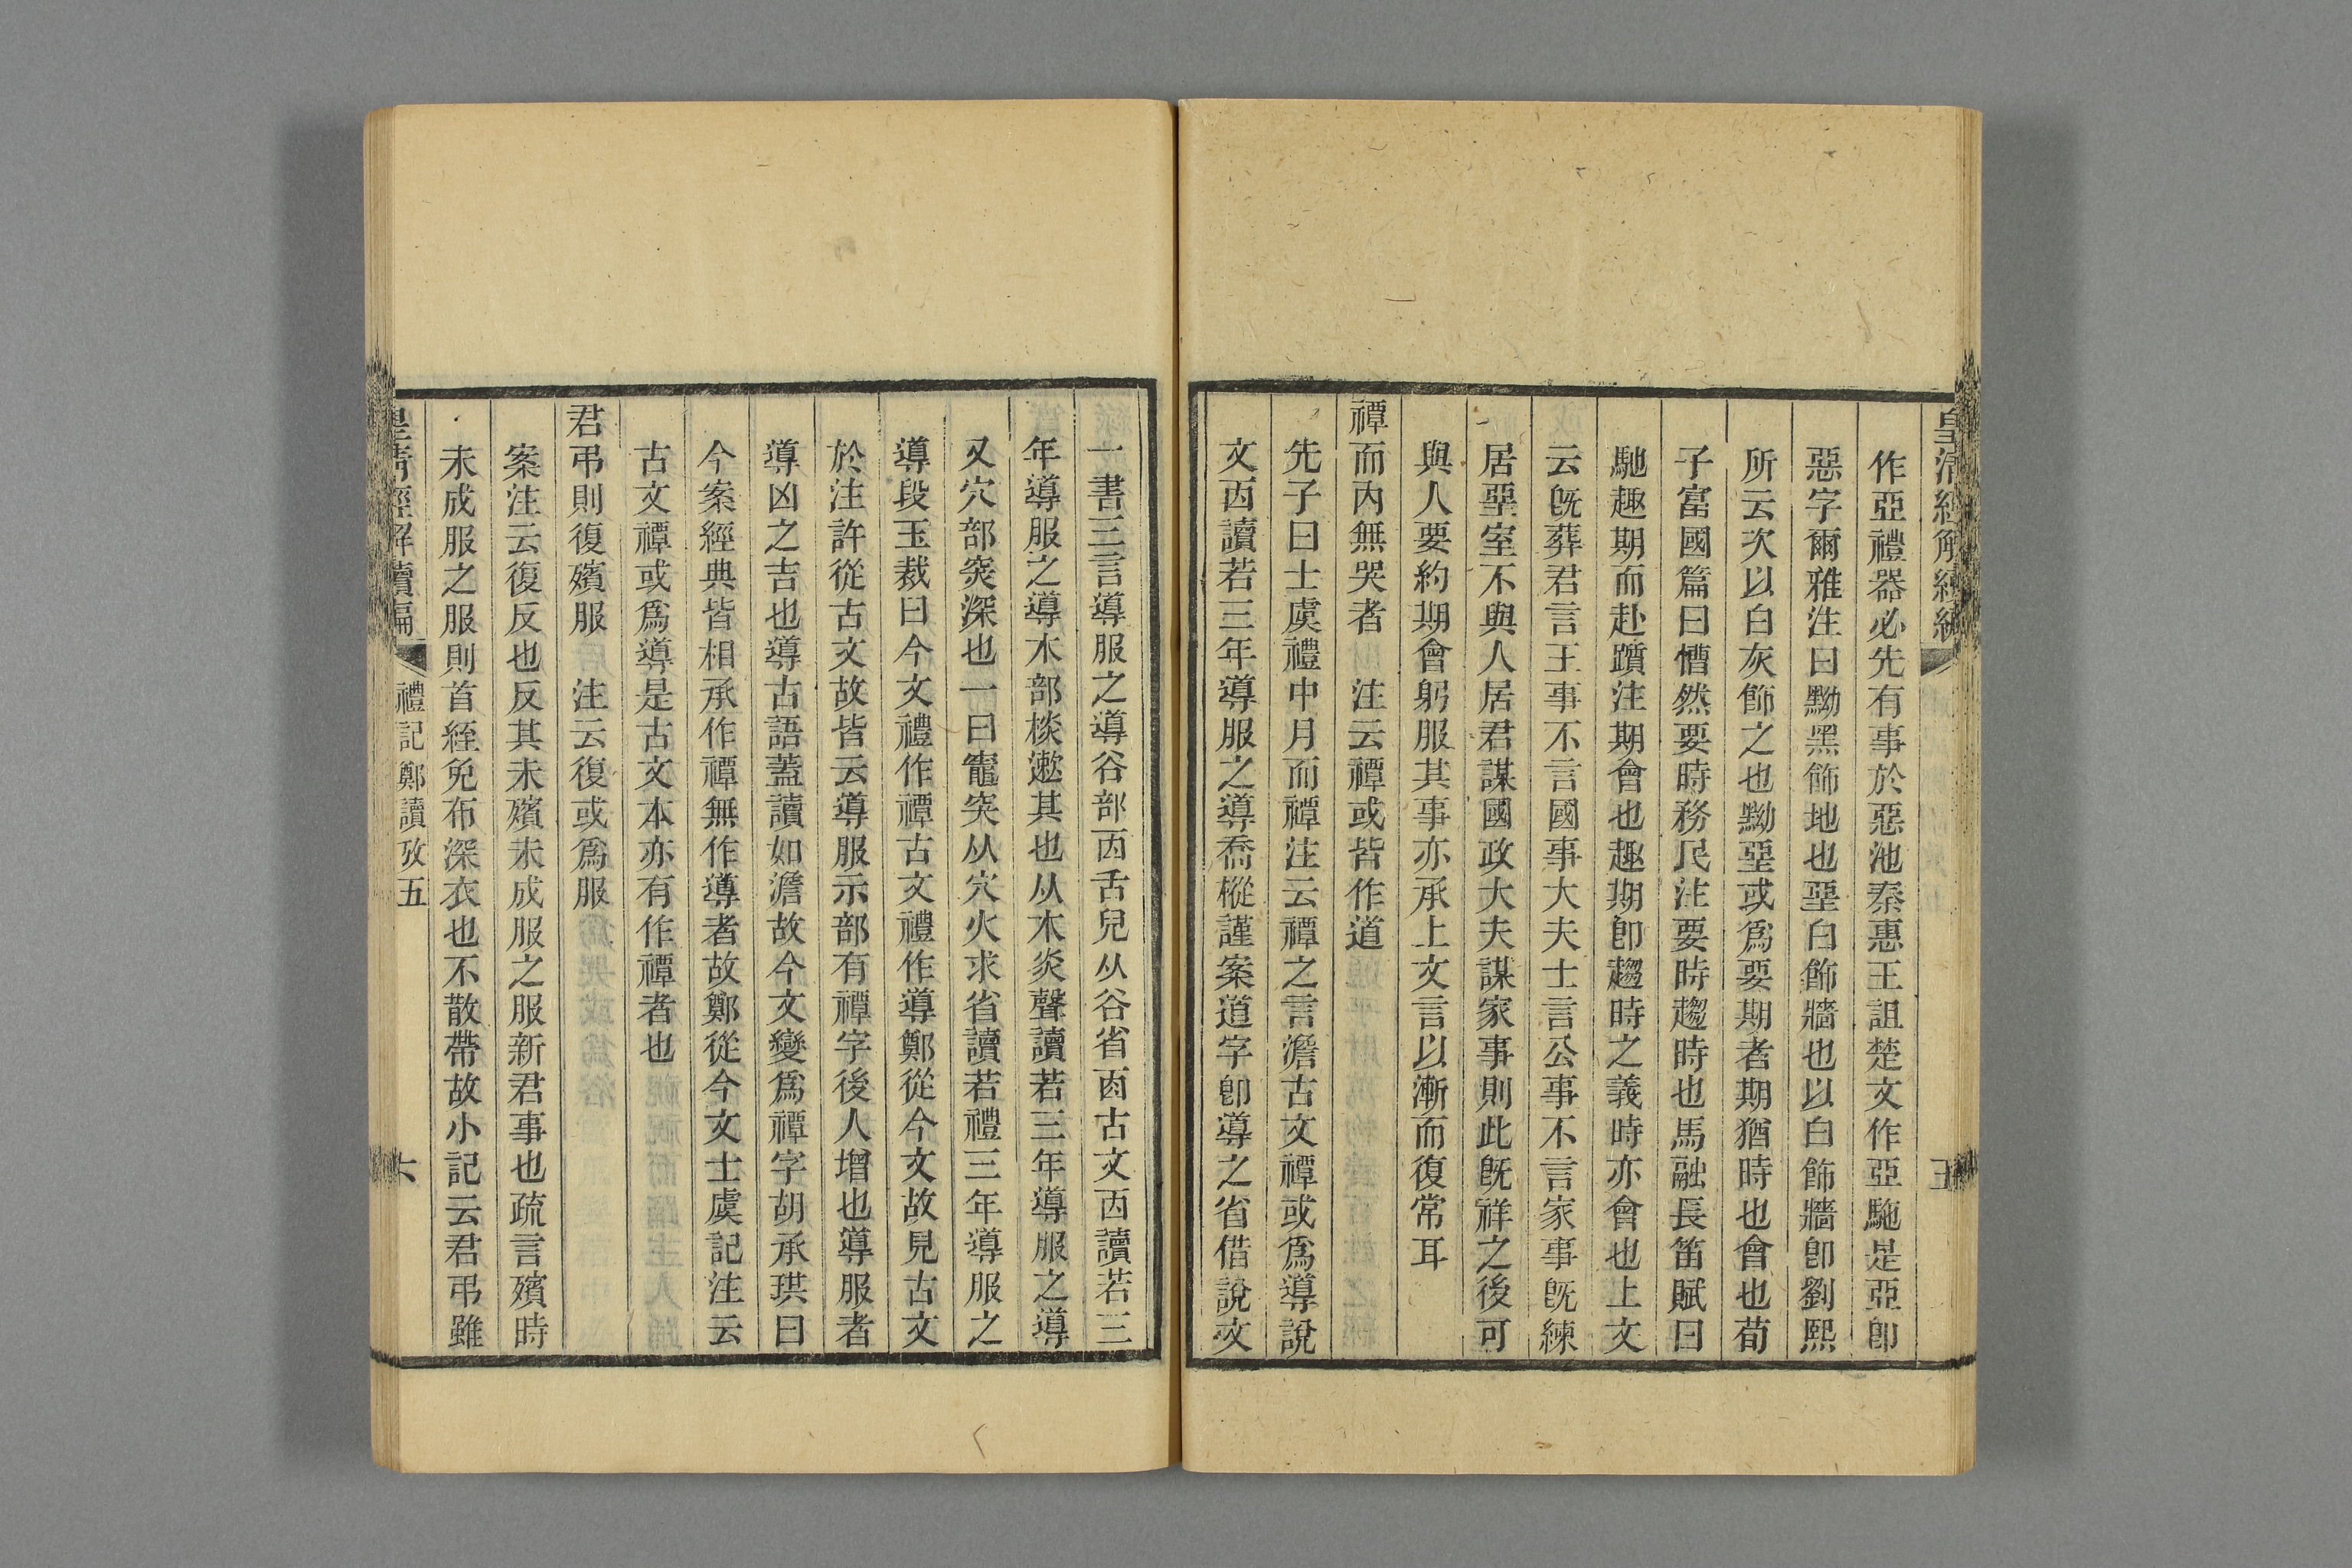 皇清經解續編
五
作亞禮器必先有事於惡池秦惠王詛楚文作亞駞是亞卽
惡字爾雅注曰黝黑飾地也堊白飾牆也以白飾牆卽劉熙
所云次以白灰飾之也黝堊或爲要期者期猶時也會也荀
子富國篇曰慒然要時務民注要時趨時也馬融長笛賦曰
馳趣期而赴躓注期會也趣期卽趨時之義時亦會也上文
云旣葬君言王事不言國事大夫士言公事不言家事旣練
居堊室不與人居君謀國政大夫謀家事則此旣祥之後可
與人要約期會躬服其事亦承上文言以漸而復常耳
禫而內無哭者 注云禫或皆作道
先子曰士虞禮中月而禫注云禫之言澹古文禫或爲導說
文㐁讀若三年導服之導喬樅謹案道字卽導之省借說文
一書三言導服之導谷部㐁舌皃从谷省㐁古文㐁讀若三
年導服之導木部棪遬其也从木炎聲讀若三年導服之導
又穴部突深也一曰竈突从穴火求省讀若禮三年導服之
導段玉裁曰今文禮作禫古文禮作導鄭從今文故見古文
於注許從古文故皆云導服示部有禫字後人增也導服者
導凶之吉也導古語蓋讀如澹故今文變爲禫字胡承珙曰
今案經典皆相承作禫無作導者故鄭從今文士虞記注云
古文禫或爲導是古文本亦有作禫者也
君弔則復殯服 注云復或爲服
案注云復反也反其未殯未成服之服新君事也疏言殯時
未成服之服則首絰免布深衣也不散帶故小記云君弔雖
皇清經解續編
禮記鄭讀攷五
六